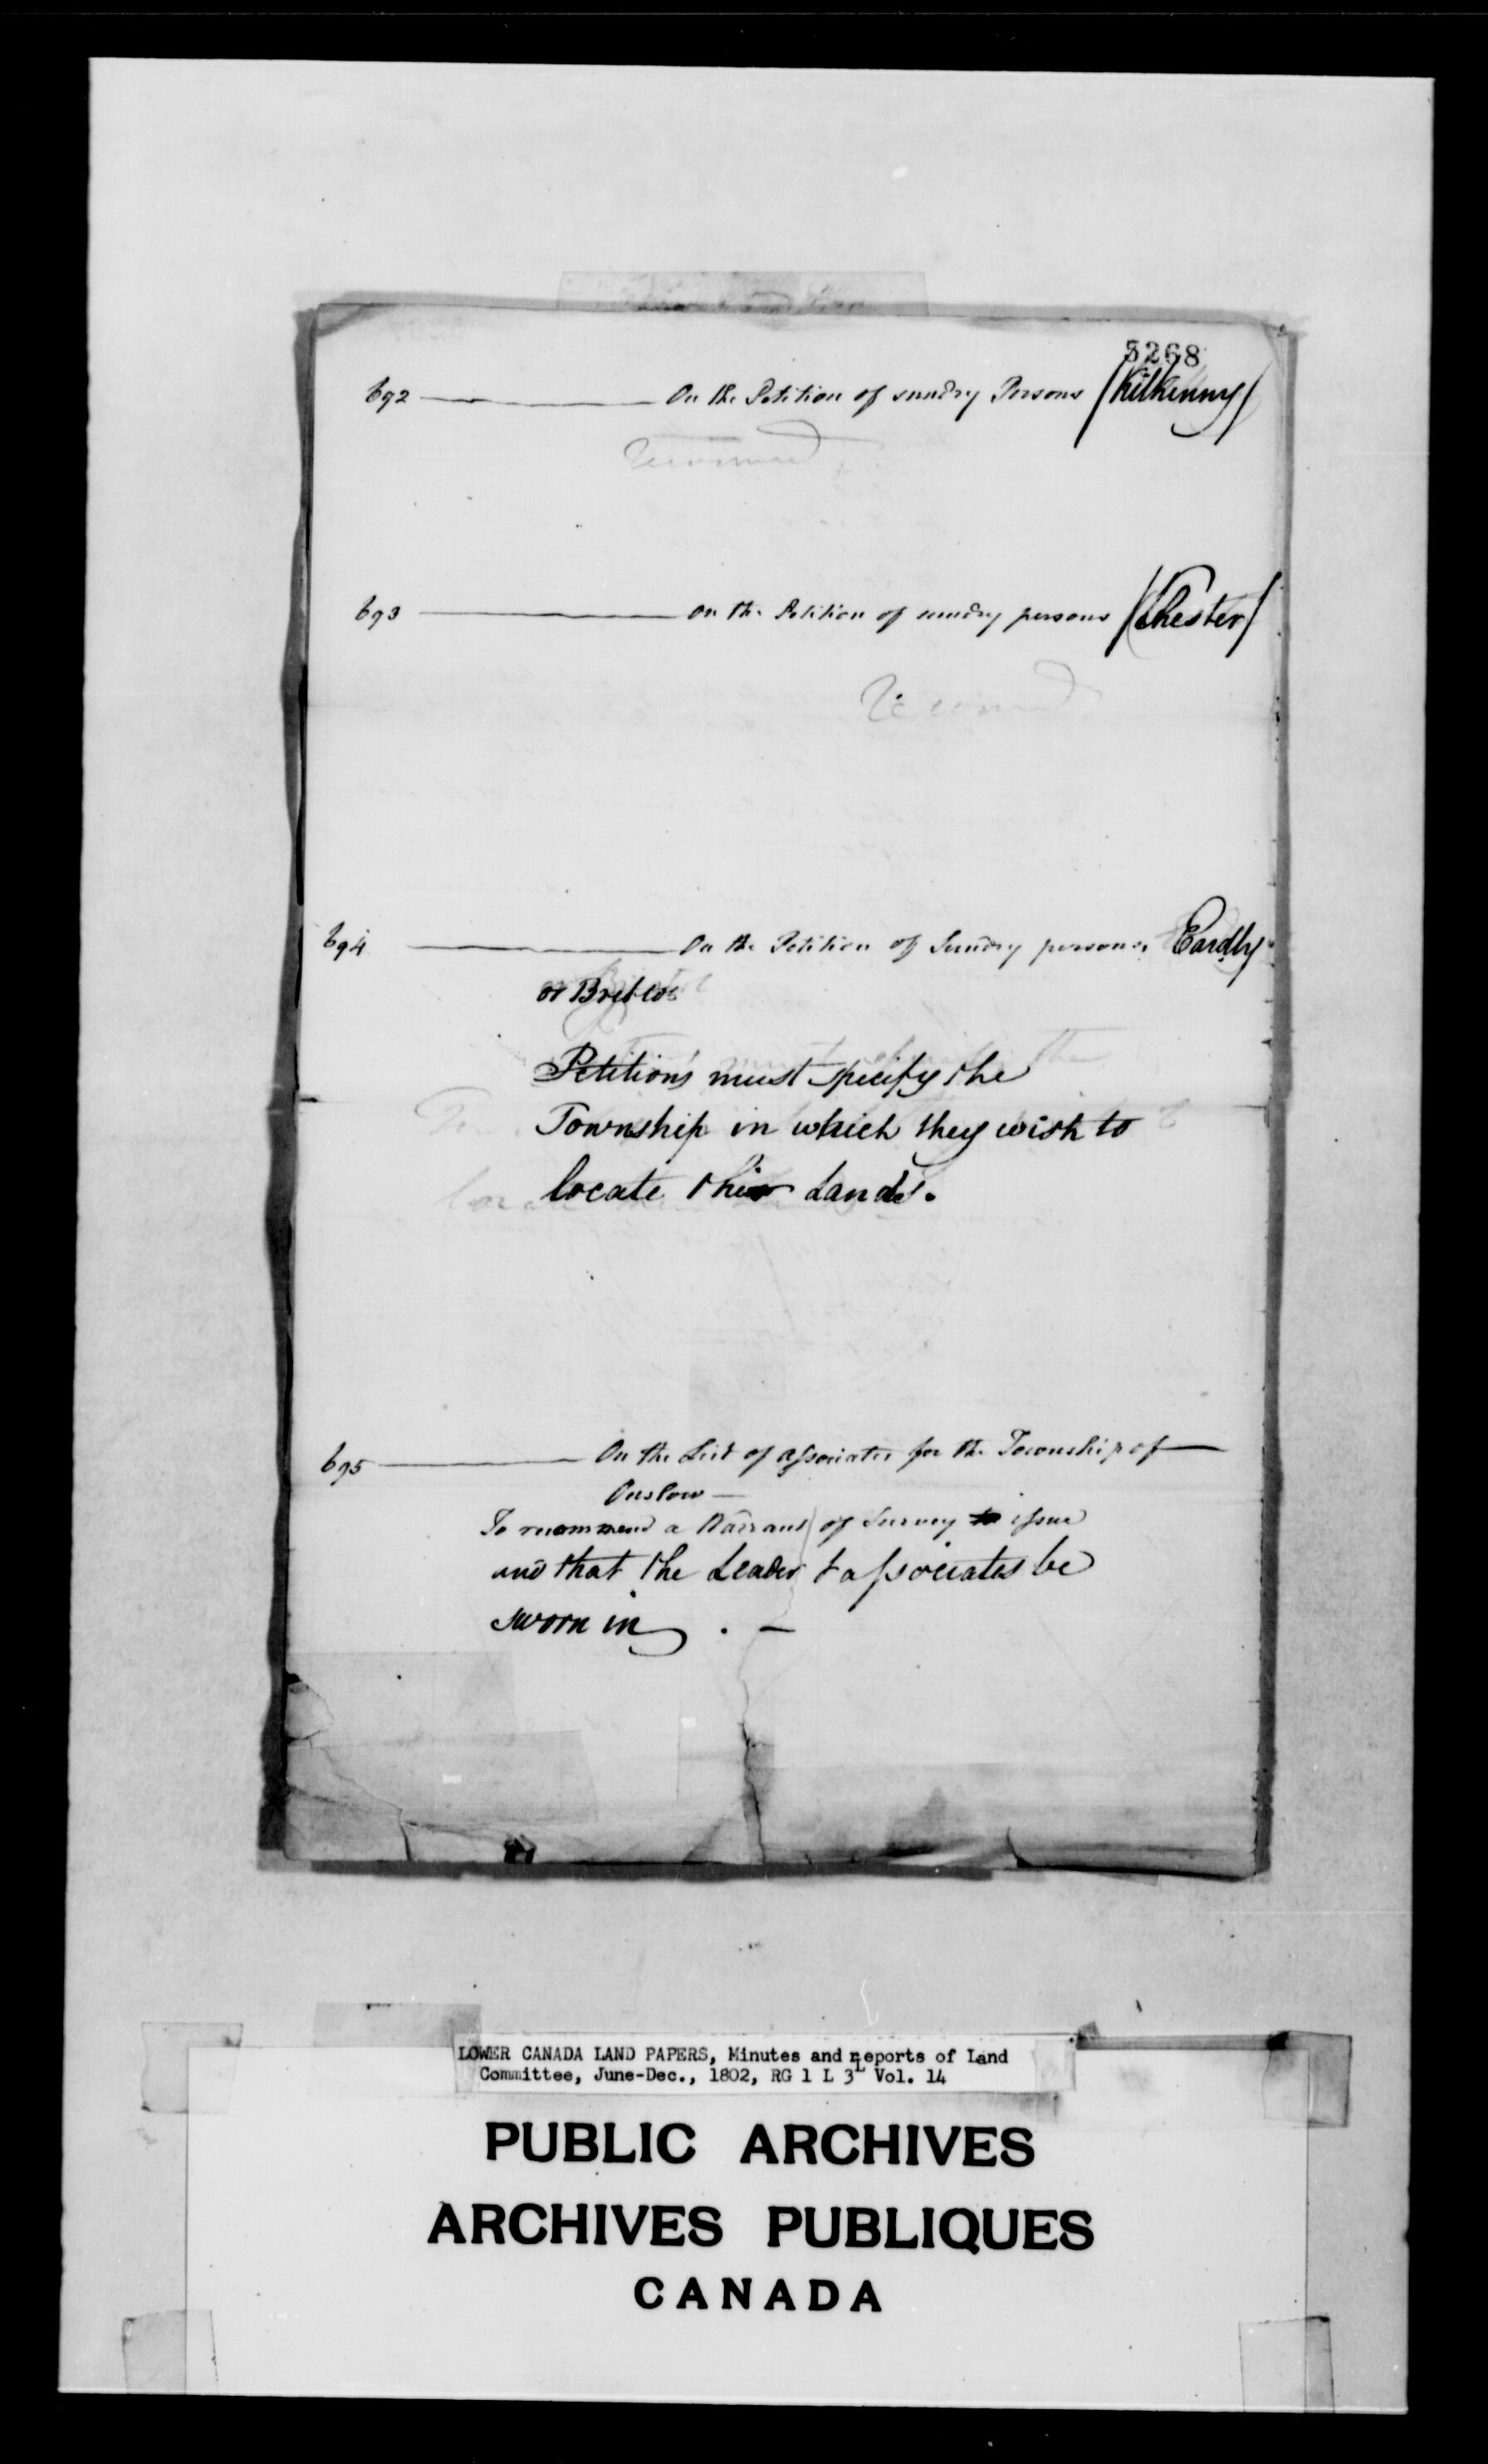 5268
692 — On the Petition of sundry Persons (Kilkenny)
693 — On the Petition of sundry persons (Chester)
694 — On the Petition of Sundry persons, Eardly
or
Petition's must specify the
Township in which they wish to
locate their Lands.
695 — On the List of Associates for the Township of —
Onslow —
To recommend a Warrant of Survey to issue
and that the Leader & associates be
sworn in . —
LOWER CANADA LAND PAPERS, Minutes and Reports of Land
Committee, June-Dec., 1802, RG 1 L 3L Vol. 14
PUBLIC ARCHIVES
ARCHIVES PUBLIQUES
CANADA